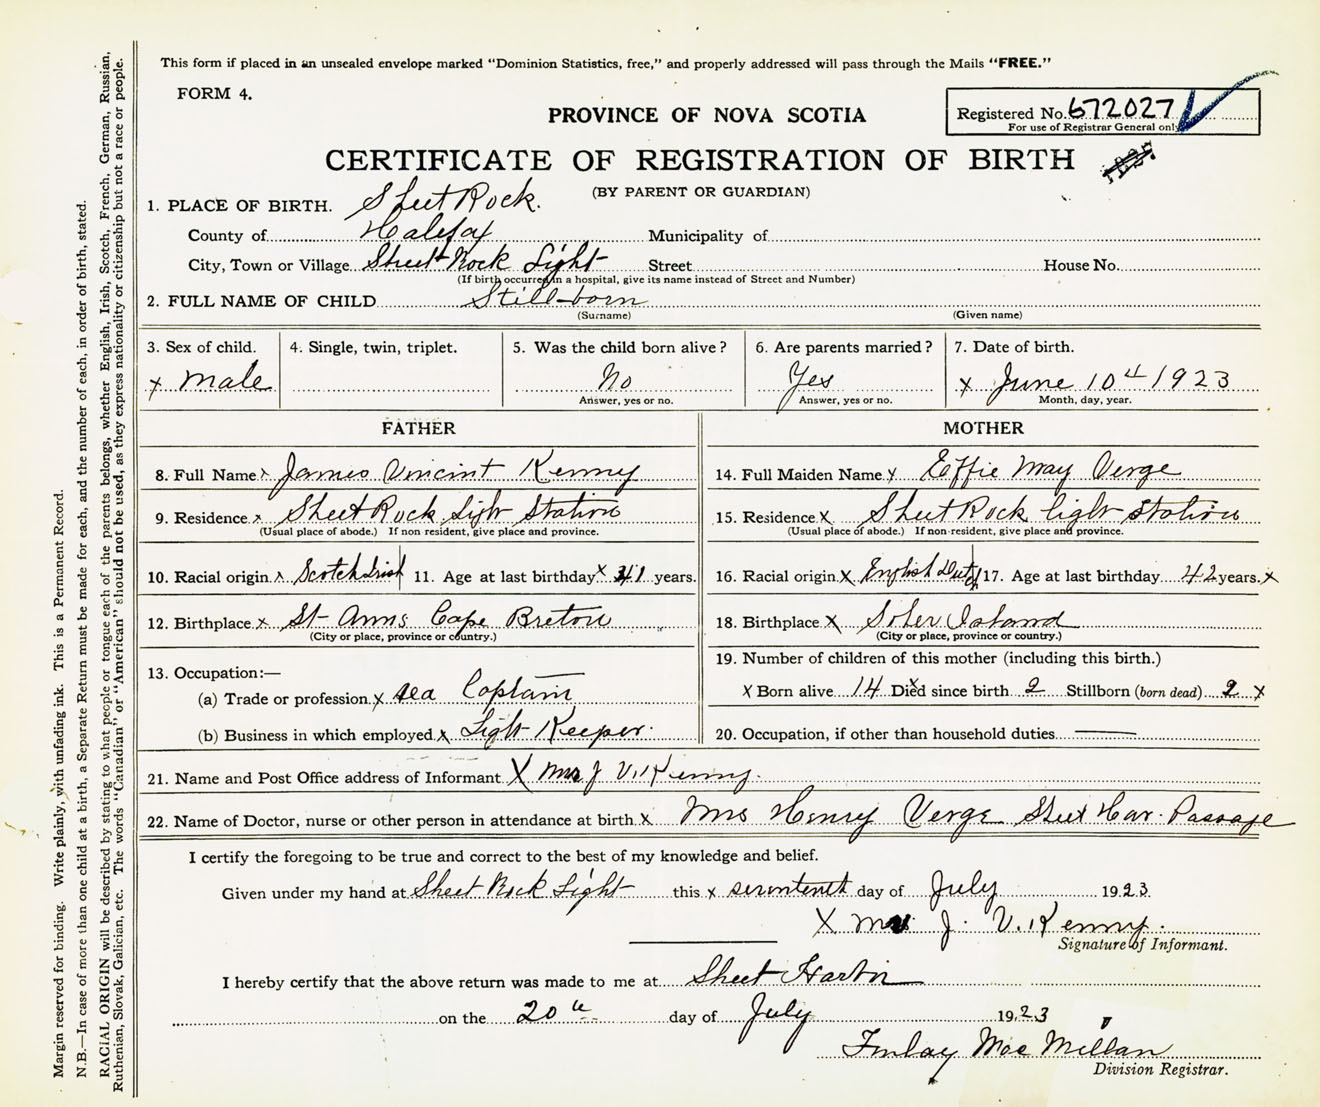 This form if placed in an unsealed envelope marked "Dominion Statistics, free," and properly addressed will pass through the Mails "FREE."
FORM 4.
PROVINCE OF NOVA SCOTIA
Registered No. 672027
For use of Registrar General only
CERTIFICATE OF REGISTRATION OF BIRTH
(BY PARENT OR GUARDIAN)
1. PLACE OF BIRTH. Sheet Rock.
County of Halifax Municipality of
City, Town or Village Sheet Rock Light Street House No.
(If birth occurred in a hospital, give its name instead of Street and Number)
2. FULL NAME OF CHILD Still-born
(Surname) (Given name)
3. Sex of child. 4. Single, twin, triplet. 5. Was the child born alive? 6. Are parents married? 7. Date of birth.
x male No Yes x June 10th 1923
Answer, yes or no. Answer, yes or no. Month, day, year.
FATHER MOTHER
8. Full Name x James Vincint Kenny 14. Full Maiden Name x Effie May Verge
9. Residence x Sheet Rock Light Station 15. Residence x Sheet Rock light Station
(Usual place of abode.) If non resident, give place and province. (Usual place of abode.) If non-resident, give place and province.
10. Racial origin x Scotch Irish 11. Age at last birthday x 41 years. 16. Racial origin x English Dutch 17. Age at last birthday 42 years. x
12. Birthplace x St Anns Cape Breton 18. Birthplace x Sober Island
(City or place, province or country.) (City or place, province or country.)
13. Occupation:— 19. Number of children of this mother (including this birth.)
(a) Trade or profession x sea Captain x Born alive 14 Died since birth 2 Stillborn (born dead) 2 x
(b) Business in which employed x Light Keeper. 20. Occupation, if other than household duties
21. Name and Post Office address of Informant X Mrs J V. Kenny.
22. Name of Doctor, nurse or other person in attendance at birth x Mrs Henry Verge Sheet Har. Passage
I certify the foregoing to be true and correct to the best of my knowledge and belief.
Given under my hand at Sheet Rock Light this x sevententh day of July 1923.
X Mrs J. V. Kenny.
Signature of Informant.
I hereby certify that the above return was made to me at Sheet Harbor
on the 20th day of July 1923
Finlay MacMillan
Division Registrar.
Margin reserved for binding. Write plainly, with unfading ink. This is a Permanent Record.
N.B.—In case of more than one child at a birth, a Separate Return must be made for each, and the number of each, in order of birth, stated.
RACIAL ORIGIN will be described by stating to what people or tongue each of the parents belongs, whether English, Irish, Scotch, French, German, Russian,
Ruthenian, Slovak, Galician, etc. The words "Canadian" or "American" should not be used, as they express nationality or citizenship but not a race or people.